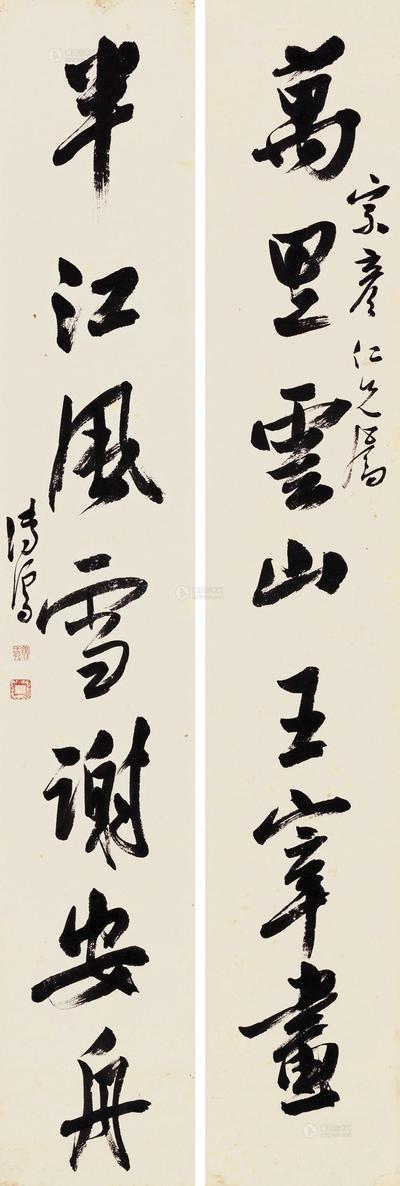 宗彥仁兄屬
萬里雲山王宰畫
半江風雪謝安舟